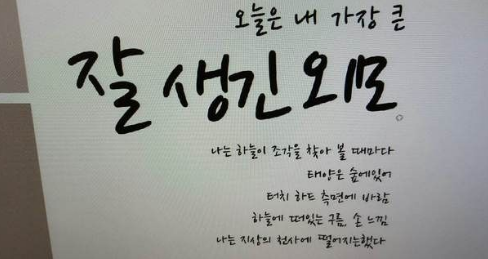 오늘은 내 가장 큰
잘 생긴 외모
나는 하늘이 조각을 찾아 볼 때마다
태양은 숲에있어
터치 하드 측면에 바람
하늘에 떠있는 구름 손 느낌
나는 지상의 천사에 떨어지는했다